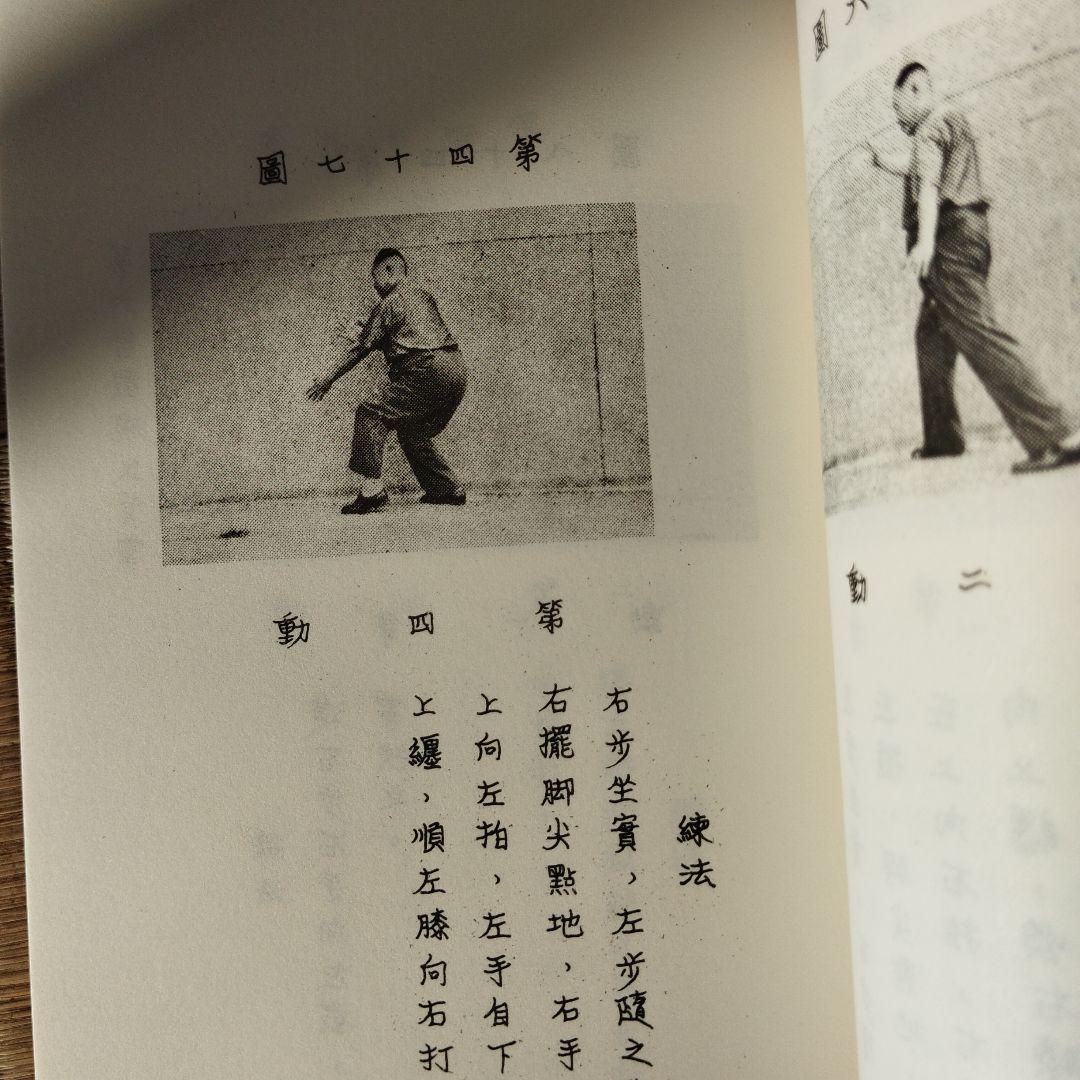 第四十七圖
第四動
練法
右步坐實，左步隨之
右擺脚尖點地，右手
上向左拍，左手自下
上纏，順左膝向右打
六圖
二動